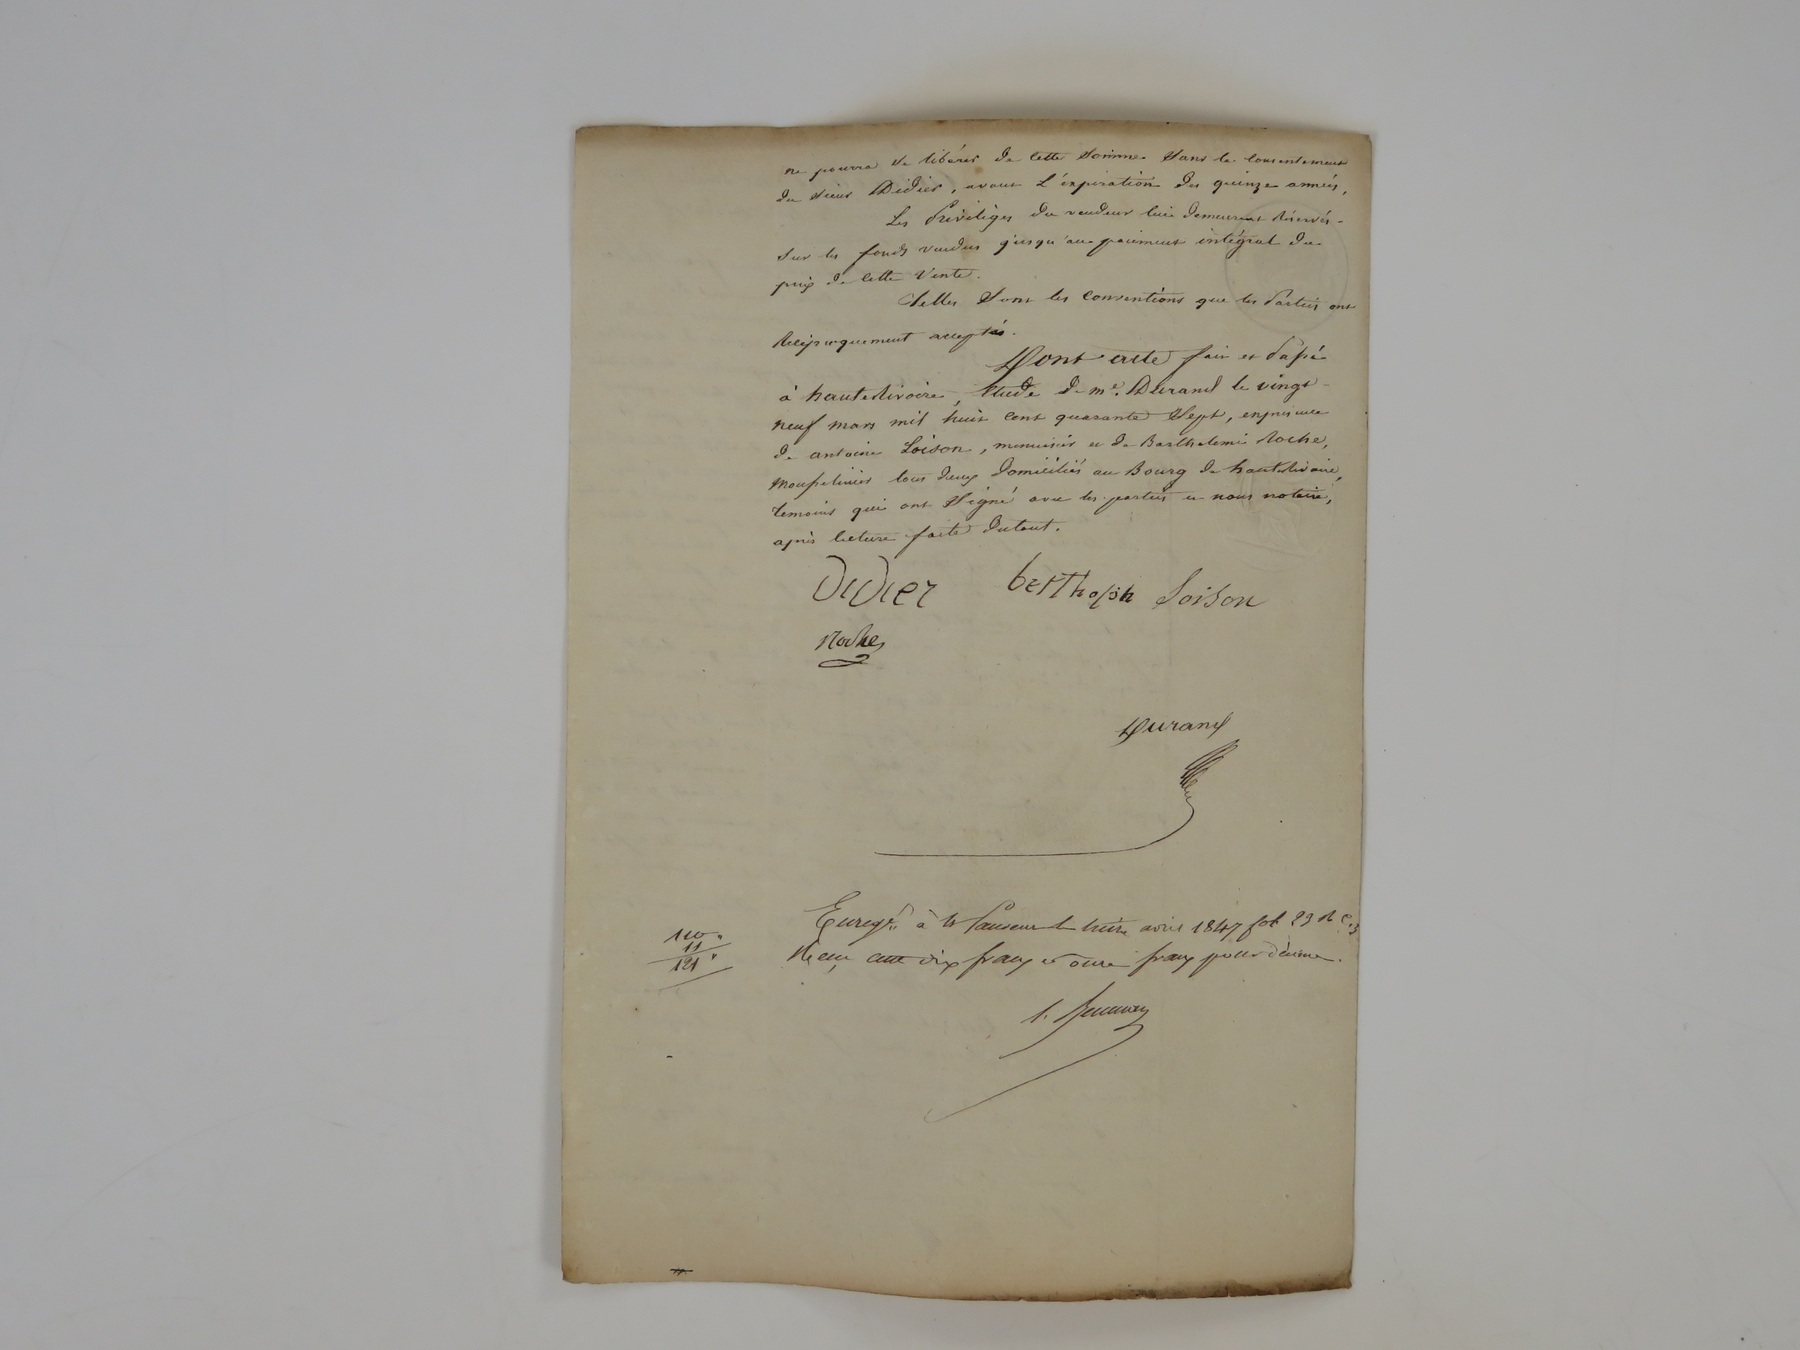 ne pourra se libérer de cette somme sans le consentement
du sieur Didier, avant l'expiration des quinze années,
Les privilèges du vendeur lui demeurent réservés
sur les fonds vendus jusqu'au paiement intégral du
prix de cette vente.
Telles sont les conventions que les parties ont
réciproquement acceptés.
Dont acte fait et passé
à hauterivoire, étude de me. Durand le vingt-
neuf mars mil huit cent quarante sept, en présence
de antoine Loison, menuisier et de Barthelemi Roche,
tous deux domiciliés au Bourg de hauterivoire,
temoins qui ont signé avec les parties et nous notaire,
après lecture faite du tout.
Didier berthojon Loison
Roche
Durand
Enregé à St Laurent le huit avril 1847 fol 23
Reçu cent dix francs et onze francs pour décime.
110
11
121